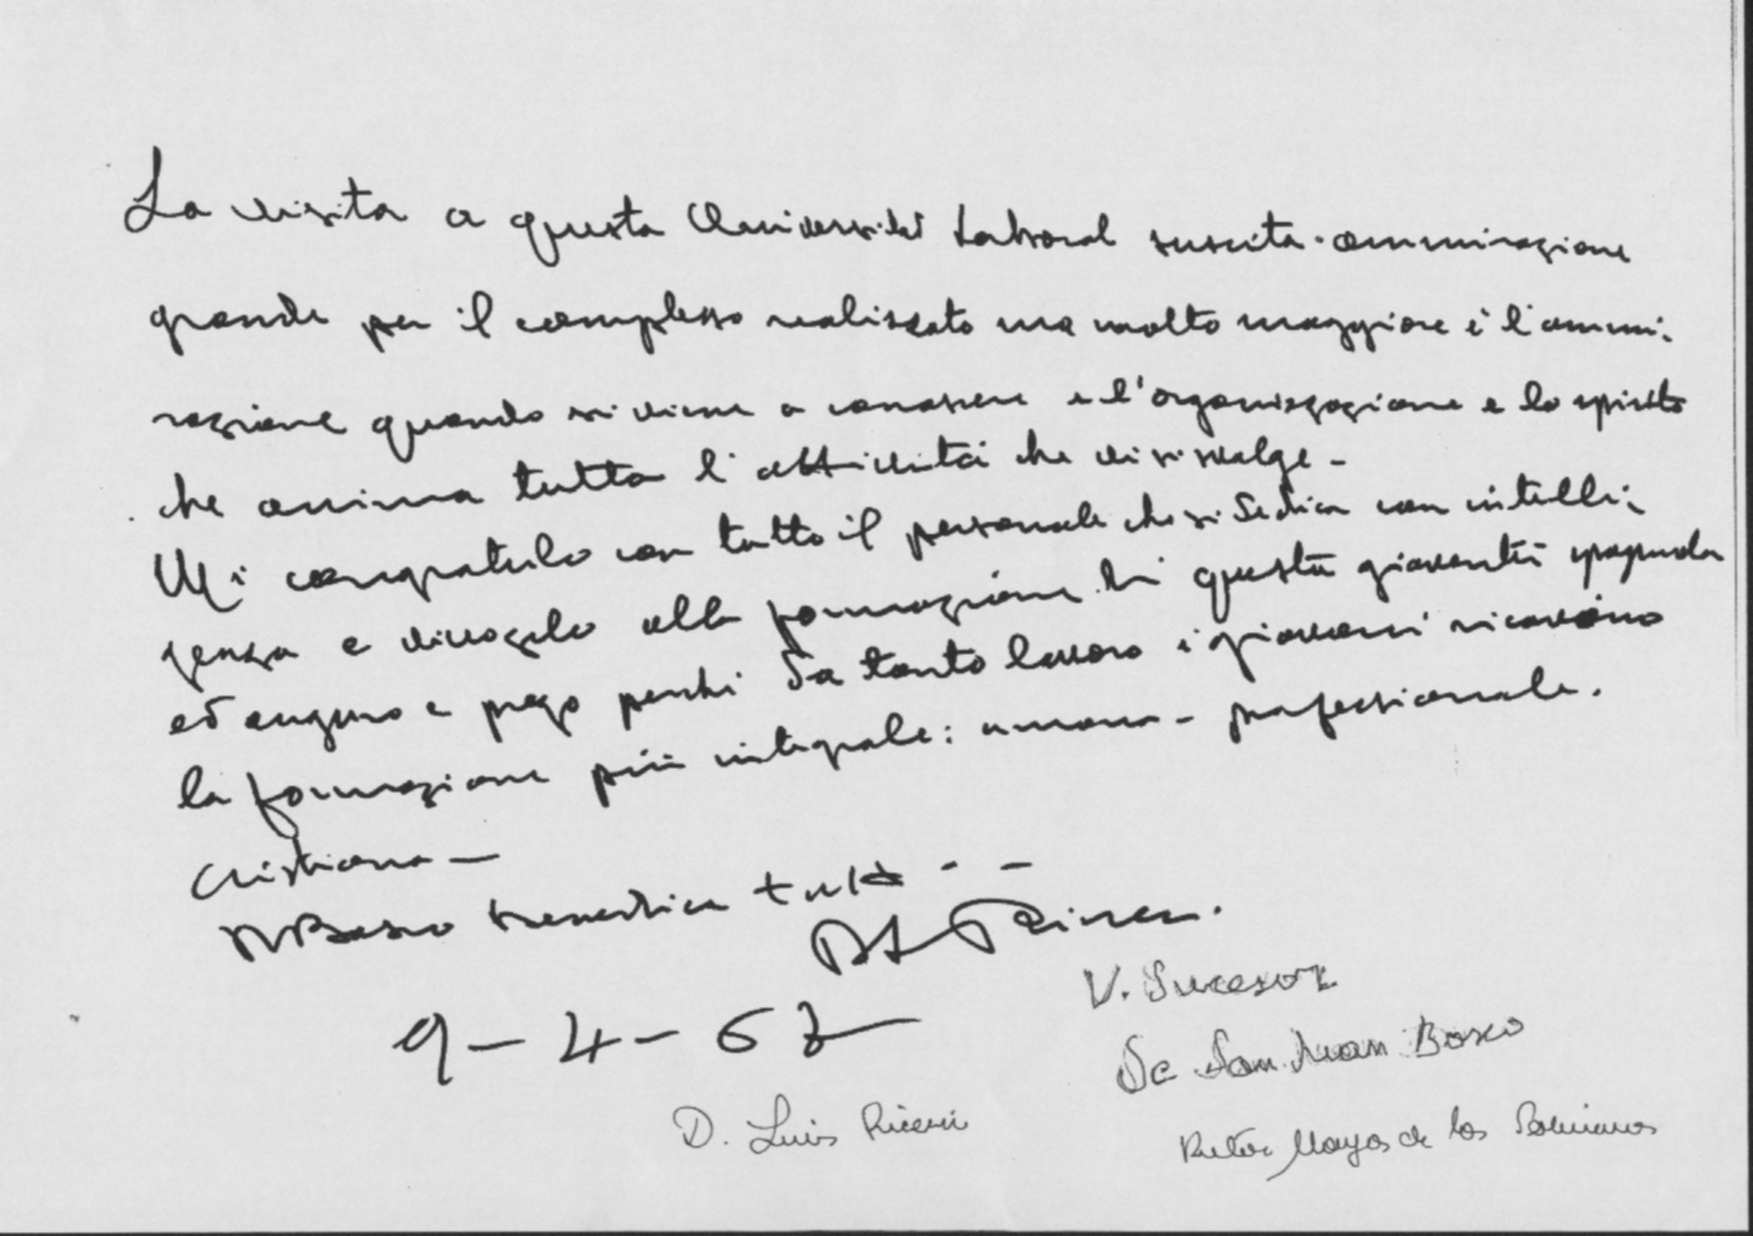 La visita a questa Università Laboral suscita ammirazione
grande per il complesso realizzato ma molto maggiore è l'ammi-
razione quando si viene a conoscere e l'organizzazione e lo spirito
che anima tutta l'attività che vi si svolge -
Mi congratulo con tutto il personale che si dedica con intelli-
genza e alla formazione di questa gioventù spagnola
ed auguro e prego perché da tanto lavoro i giovani ricavino
la formazione più integrale: umana - professionale.
Cristiana -
D Bosco benedica tutti - -
D L Ricceri.
V. Sucesor
De San Juan Bosco
9 - 4 - 67
D. Luis Riceri
Rector Mayor de los Salesianos